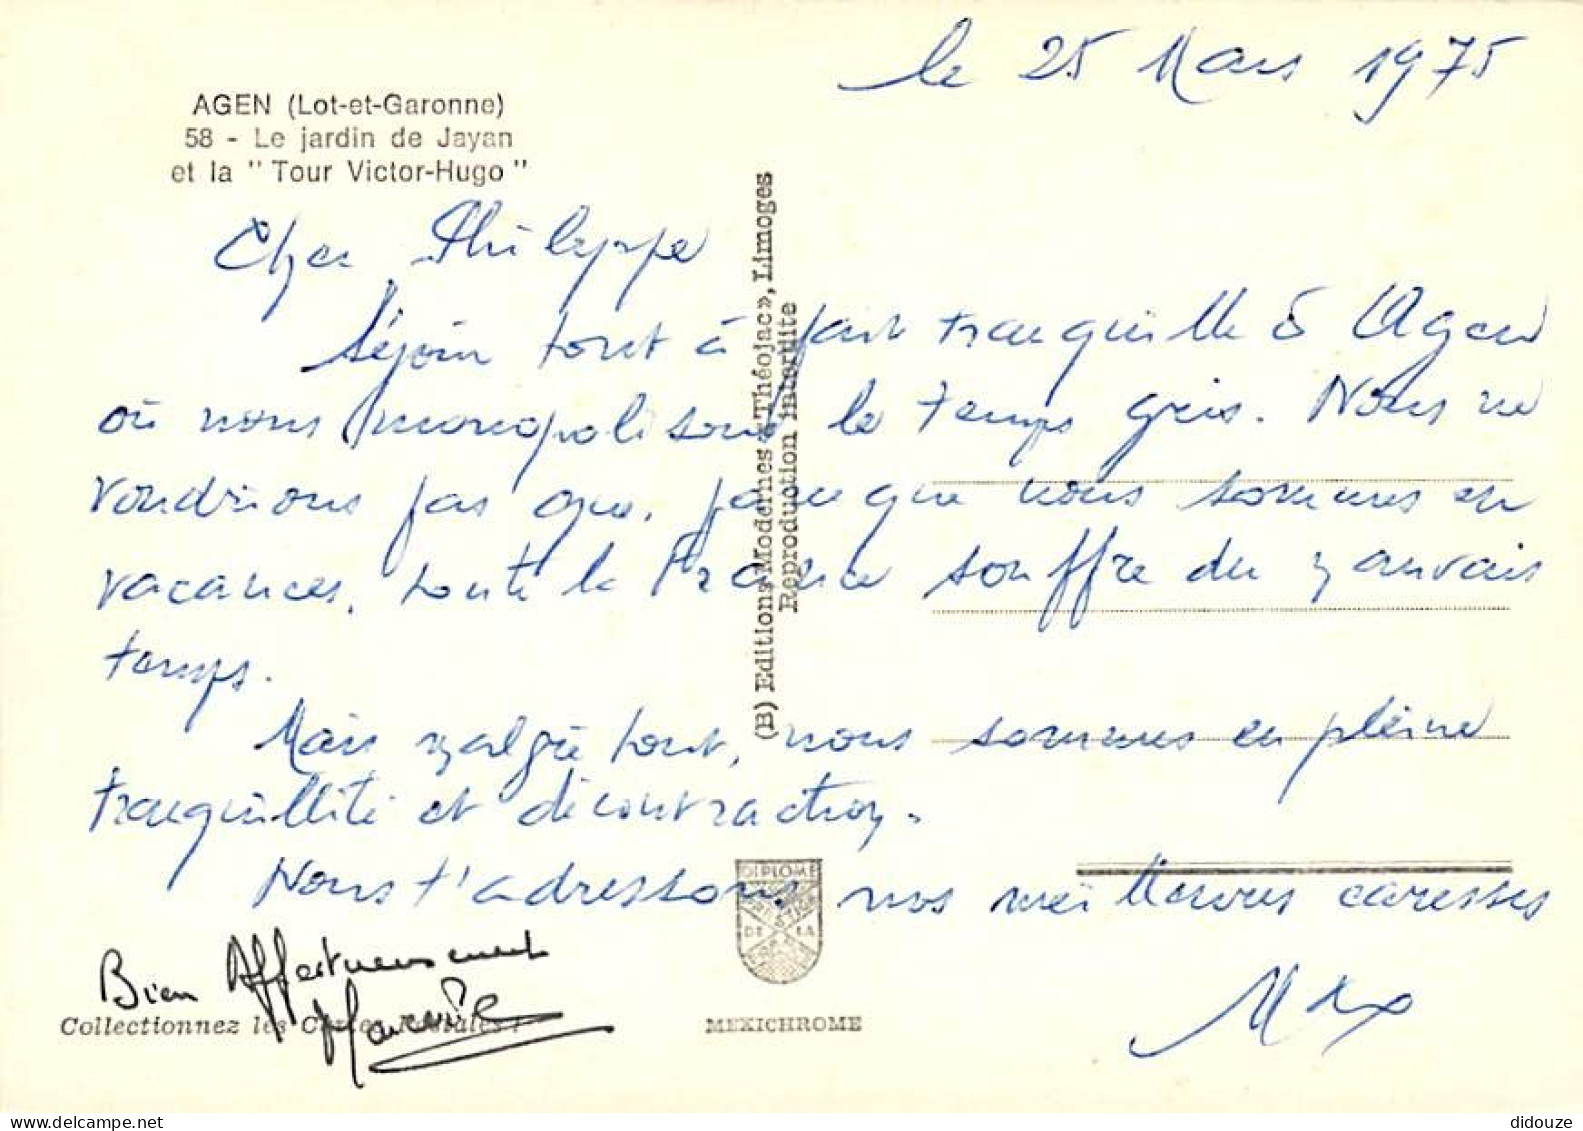 le 25 Mars 1975
AGEN (Lot-et-Garonne)
58 - Le jardin de Jayan
et la " Tour Victor-Hugo "
Cher Philippe
Séjour tout à fait tranquille à Agen
où nous monopolisons le temps gris. Nous ne
voudrions pas que, parce que nous sommes en
vacances, toute la France souffre du mauvais
temps.
Mais malgré tout, nous sommes en pleine
tranquillité et décontraction.
Nous t'adressons nos meilleures caresses
Max
Bien Affectueusement
(B) Editions Modernes «Théojac», Limoges
Reproduction interdite
DIPLOME
PRESTIGE
DE LA
Collectionnez les Cartes Postales !
MEXICHROME
didouze